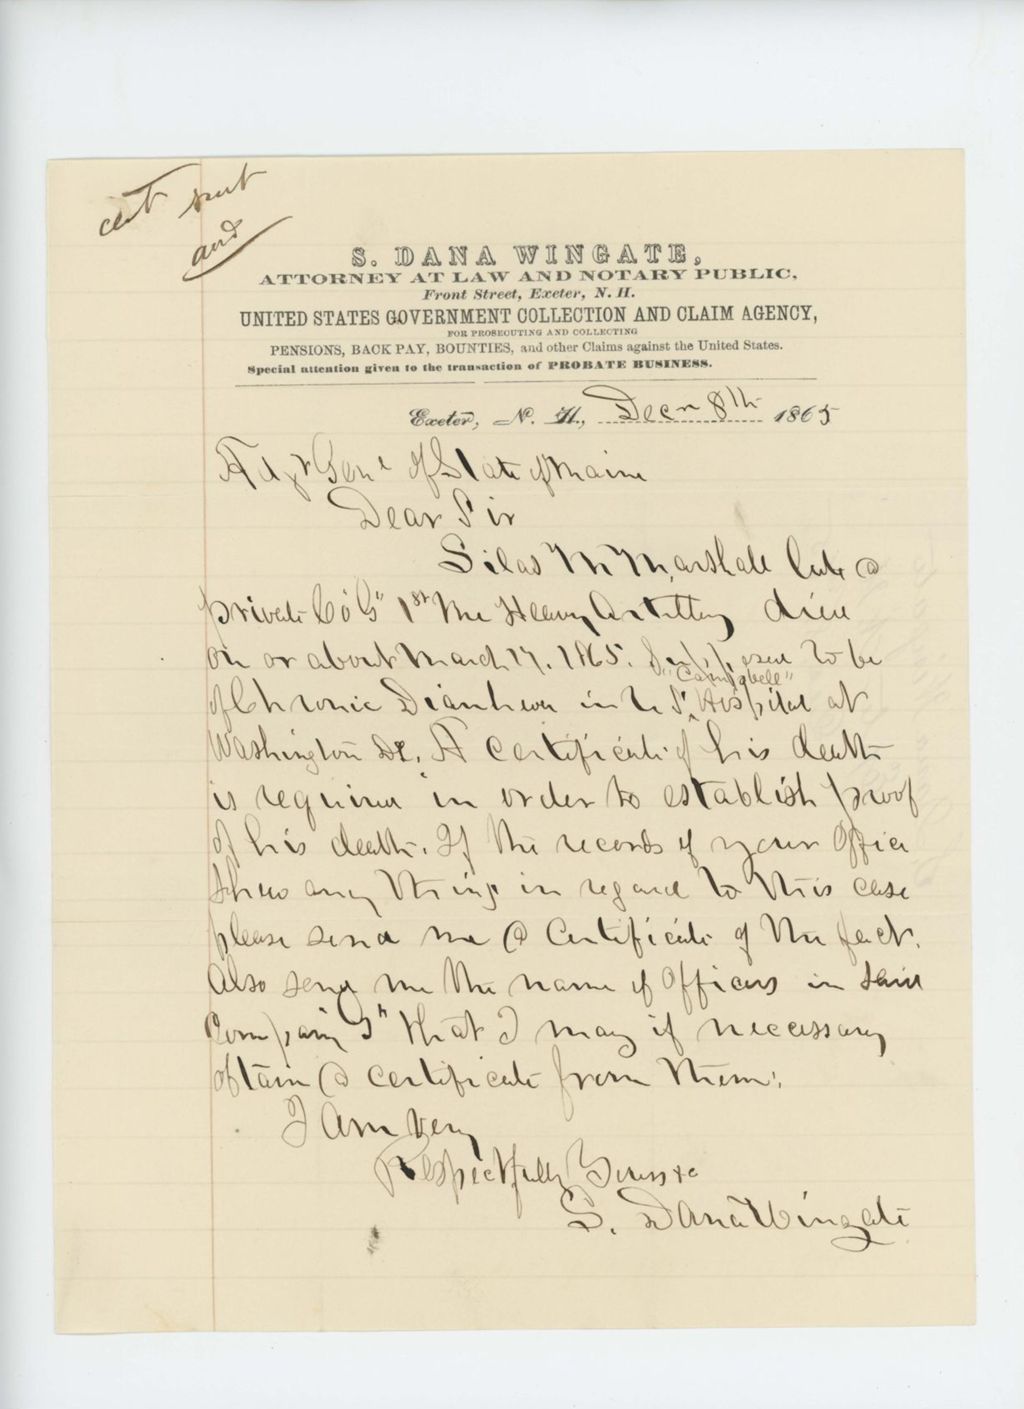 cert sent
and
S. DANA WINGATE,
ATTORNEY AT LAW AND NOTARY PUBLIC,
Front Street, Exeter, N. H.
UNITED STATES GOVERNMENT COLLECTION AND CLAIM AGENCY,
FOR PROSECUTING AND COLLECTING
PENSIONS, BACK PAY, BOUNTIES, and other Claims against the United States.
Special attention given to the transaction of PROBATE BUSINESS.
Exeter, N. H., Decr 8th 1865
Adjt Genl of State of Maine
Dear Sir
Silas M Marshall late a
private Co "G" 1st Me Heavy Artillery died
on or about March 17. 1865. Supposed to be
"Campbell"
of Chronic Diarrhea in U S. Hospital at
Washington DC. A certificate of his death
is required in order to establish proof
of his death. If the records of your Office
shew any thing in regard to this case
please send me a Certificate of the fact.
Also send me the name of Officers in said
Company G" that I may if necessary
obtain a certificate from them.
I Am Very
Respectfully Yours &c
S. Dana Wingate